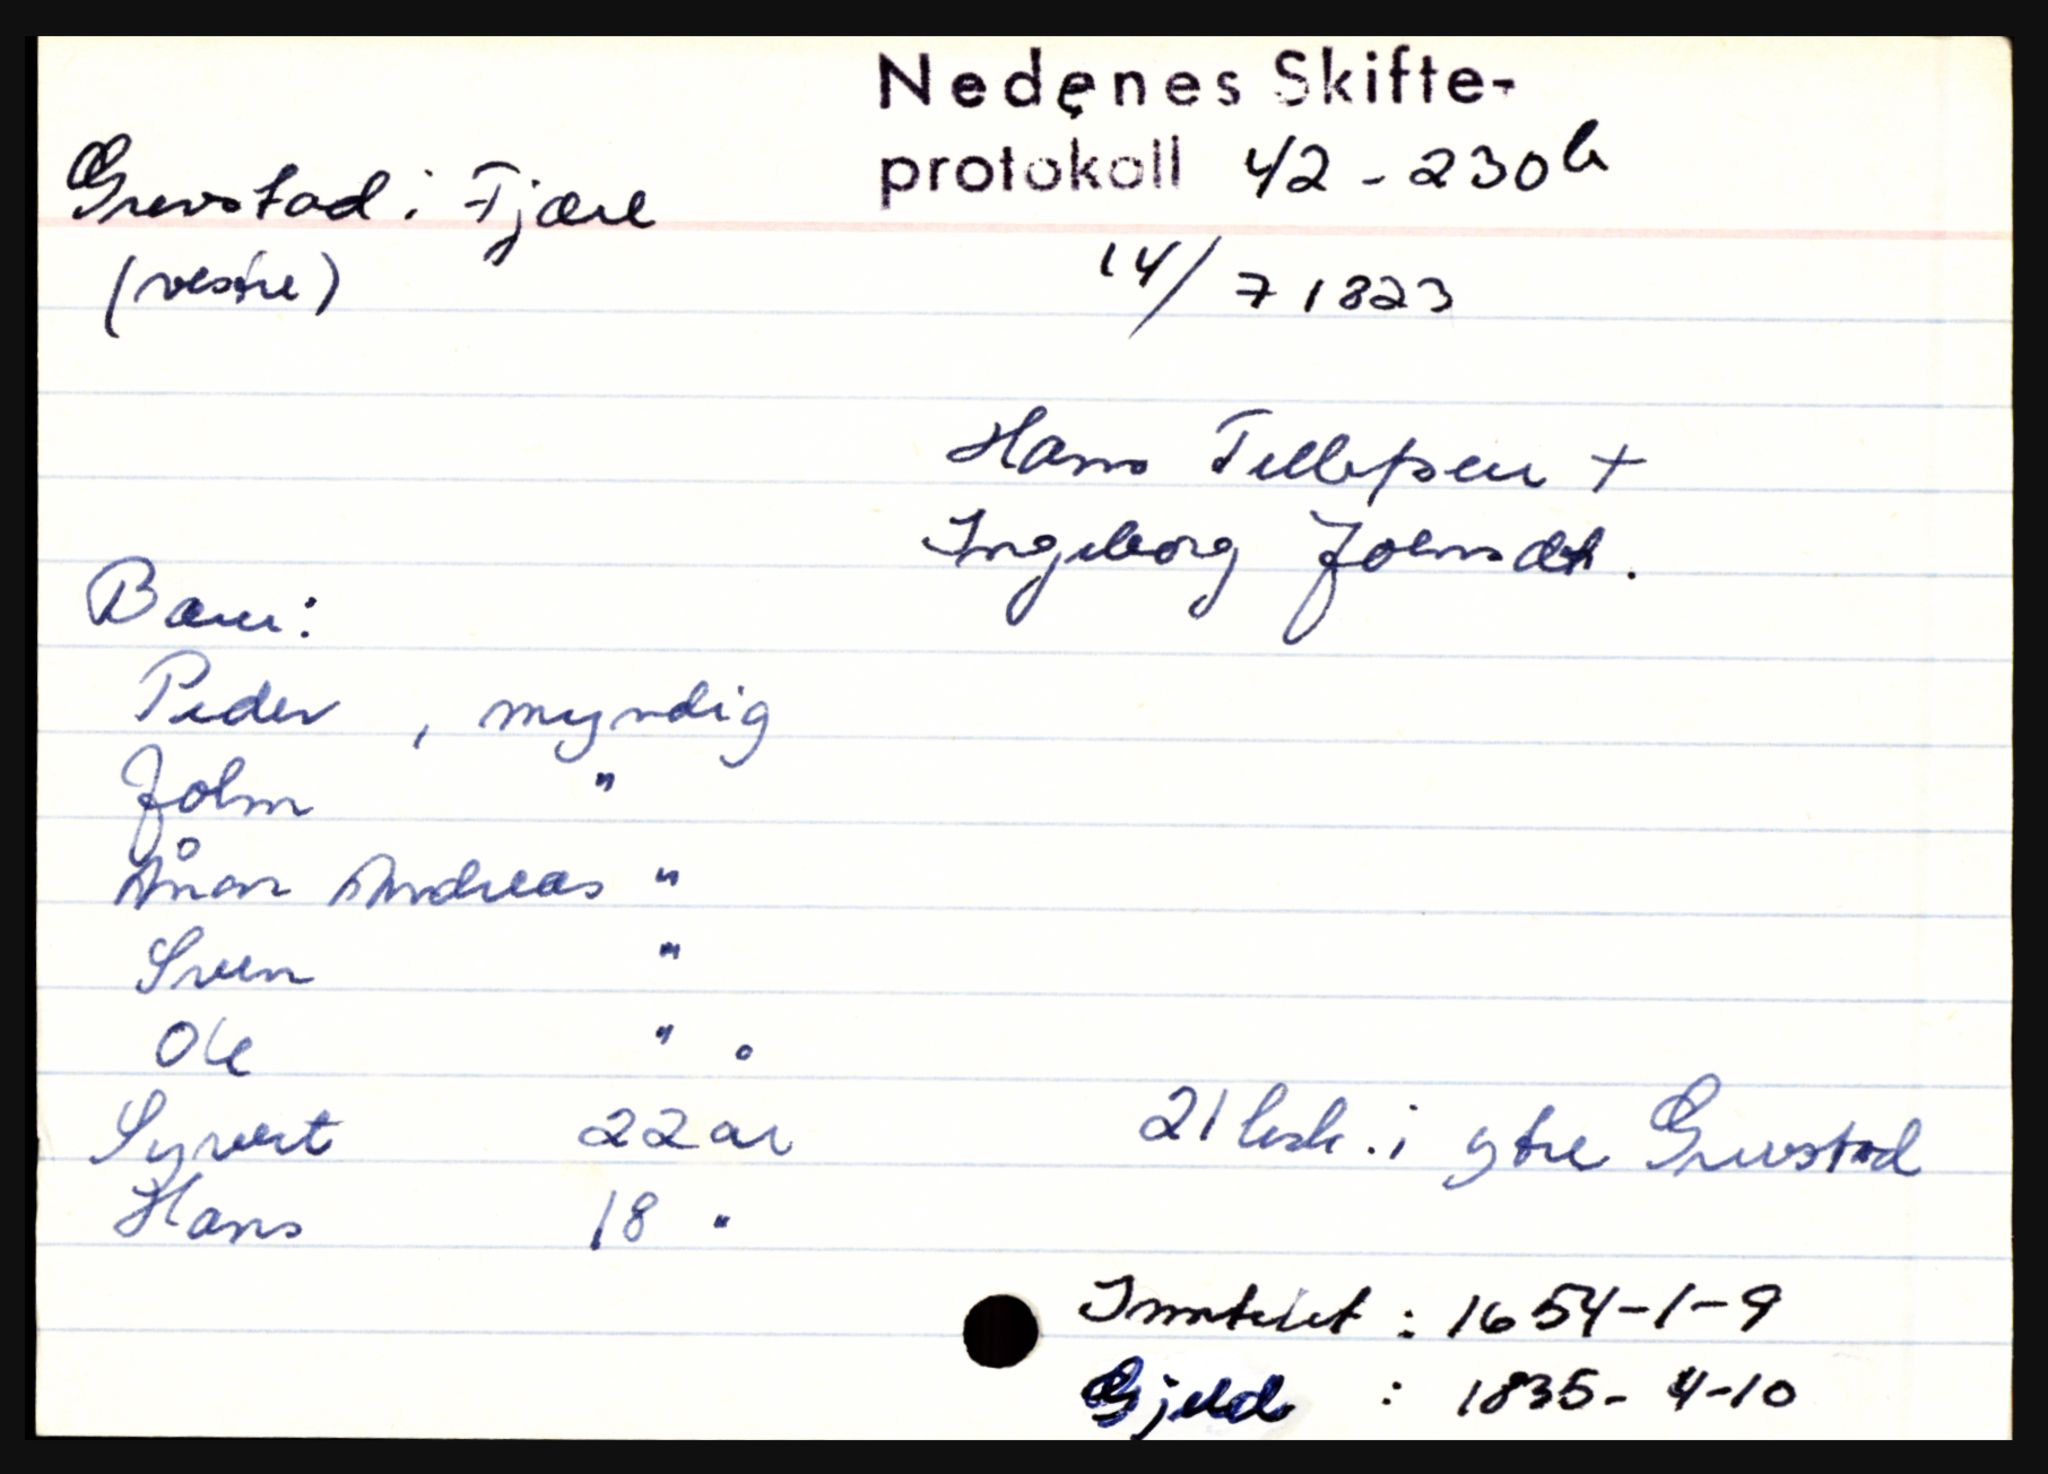 Nedenes Skifte-
protokoll 42 - 230b
Grevstad i Fjære
(vestre)
14/7 1823
Hans Tellefsen +
Ingeborg Johnsdtr.
Barn:
Peder , myndig
John "
Ånon Andreas "
Sven "
Ole "
Syvert 22 år
21 besk. i ytre Grevstad
Hans 18 "
Inntekt : 1654-1-9
Gjeld : 1835- 4-10